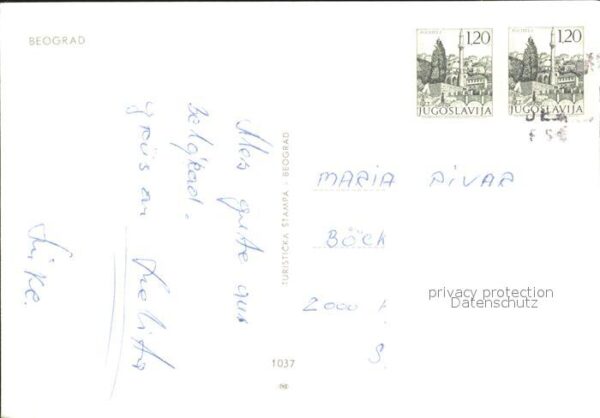 BEOGRAD
1,20
1,20
JUGOSLAVIJA
JUGOSLAVIJA
Alles gute aus
Belgrad.
Grüs an
TURISTIČKA ŠTAMPA - BEOGRAD
1037
MARIA RIVAR
BÖCK
2000
S.
privacy protection
Datenschutz